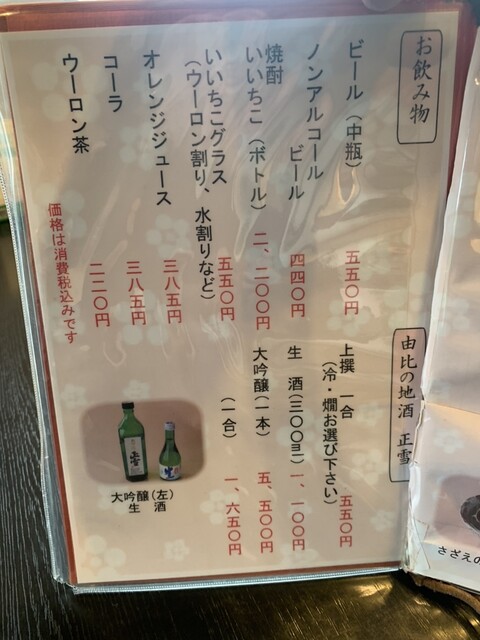 お飲み物
ビール（中瓶）　五五〇円
ノンアルコール
ビール　四四〇円
焼酎
いいちこ（ボトル）　二、二〇〇円
いいちこグラス　五五〇円
（ウーロン割り、水割りなど）
オレンジジュース　三八五円
コーラ　三八五円
ウーロン茶　二二〇円
価格は消費税込みです
由比の地酒　正雪
上撰　一合　五五〇円
（冷・燗お選び下さい）
生　酒（三〇〇ml）　一、一〇〇円
大吟醸（一本）　五、五〇〇円
（一合）　一、六五〇円
大吟醸（左）
生　酒
さざえの